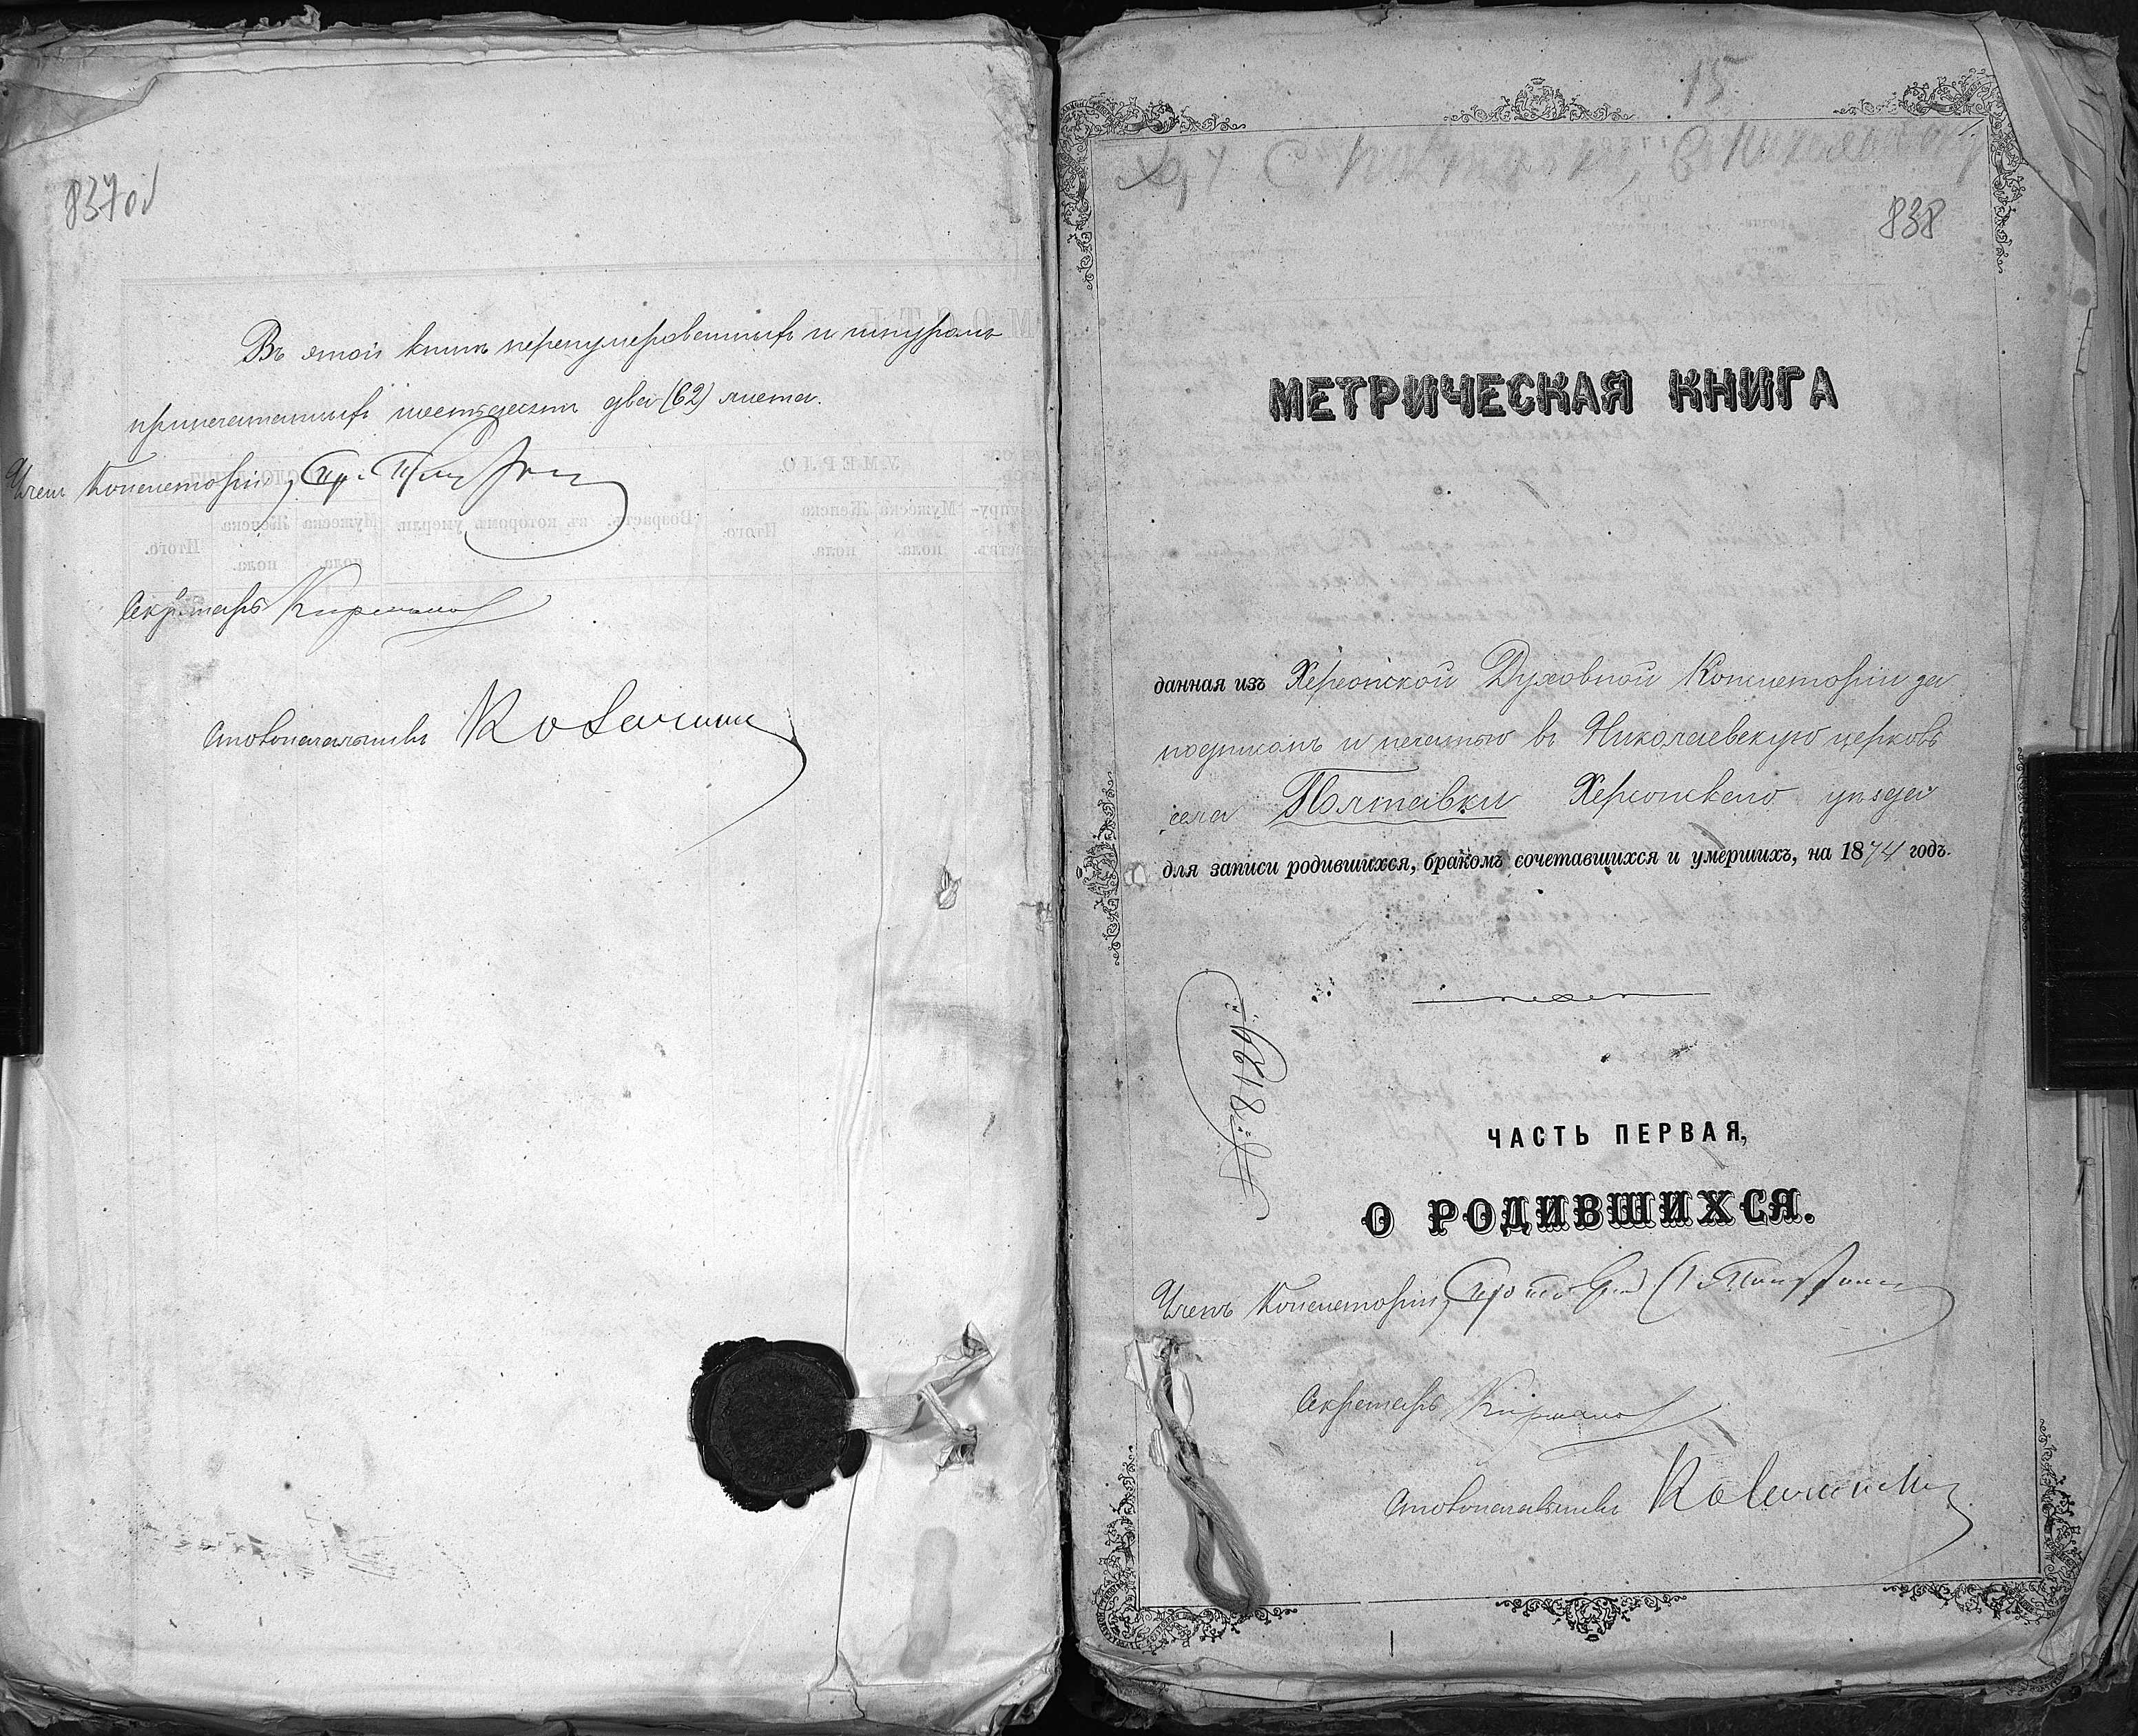 837 об
Въ этой книгѣ перенумерованныхъ и шнуромъ
припечатанныхъ шестьдесятъ два (62) листа.
Членъ Консисторіи, Пр.
Секретарь
Столоначальникъ
15
С Полтавки,
838
МЕТРИЧЕСКАЯ КНИГА
данная изъ Херсонской Духовной Консисторіи за
подписомъ и печатью въ Николаевскую церковь
села Полтавки Херсонскаго уѣзда
для записи родившихся, бракомъ сочетавшихся и умершихъ, на 1874 годъ.
№ 8199
ЧАСТЬ ПЕРВАЯ,
О РОДИВШИХСЯ.
Членъ Консисторіи,
Секретарь
Столоначальникъ